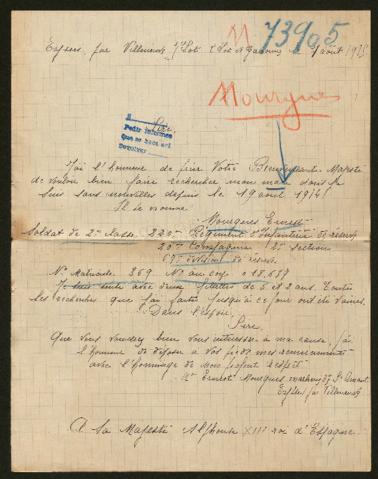 M 73905
Eysses, par Villeneuve s/ Lot août 1915
Mourgues
Sire
Pedir informes
Que se haga así
Devolver
J'ai l'honneur de prier Votre Bienveillante Majesté
de vouloir bien faire rechercher mon mari dont je
suis sans nouvelles depuis le 19 août 1914.
Il se nomme
Mourgues Ernest
Soldat de 2e classe, 220e Régiment d'Infanterie de réserve
20e Compagnie 2e section
67e division de réserve
No Matricule 269 No au corps 018.657
Je suis seule avec deux fillettes de 5 et 2 ans. Toutes
les recherches que j'ai faites jusqu'à ce jour ont été vaines.
Dans l'espoir,
Sire,
Que vous voudrez bien vous intéresser à ma cause, j'ai
l'honneur de déposer à vos pieds mes remerciements
avec l'hommage de mon profond respect
Ernest Mourgues
Eysses par Villeneuve
A Sa Majesté Alphonse XIII roi d'Espagne